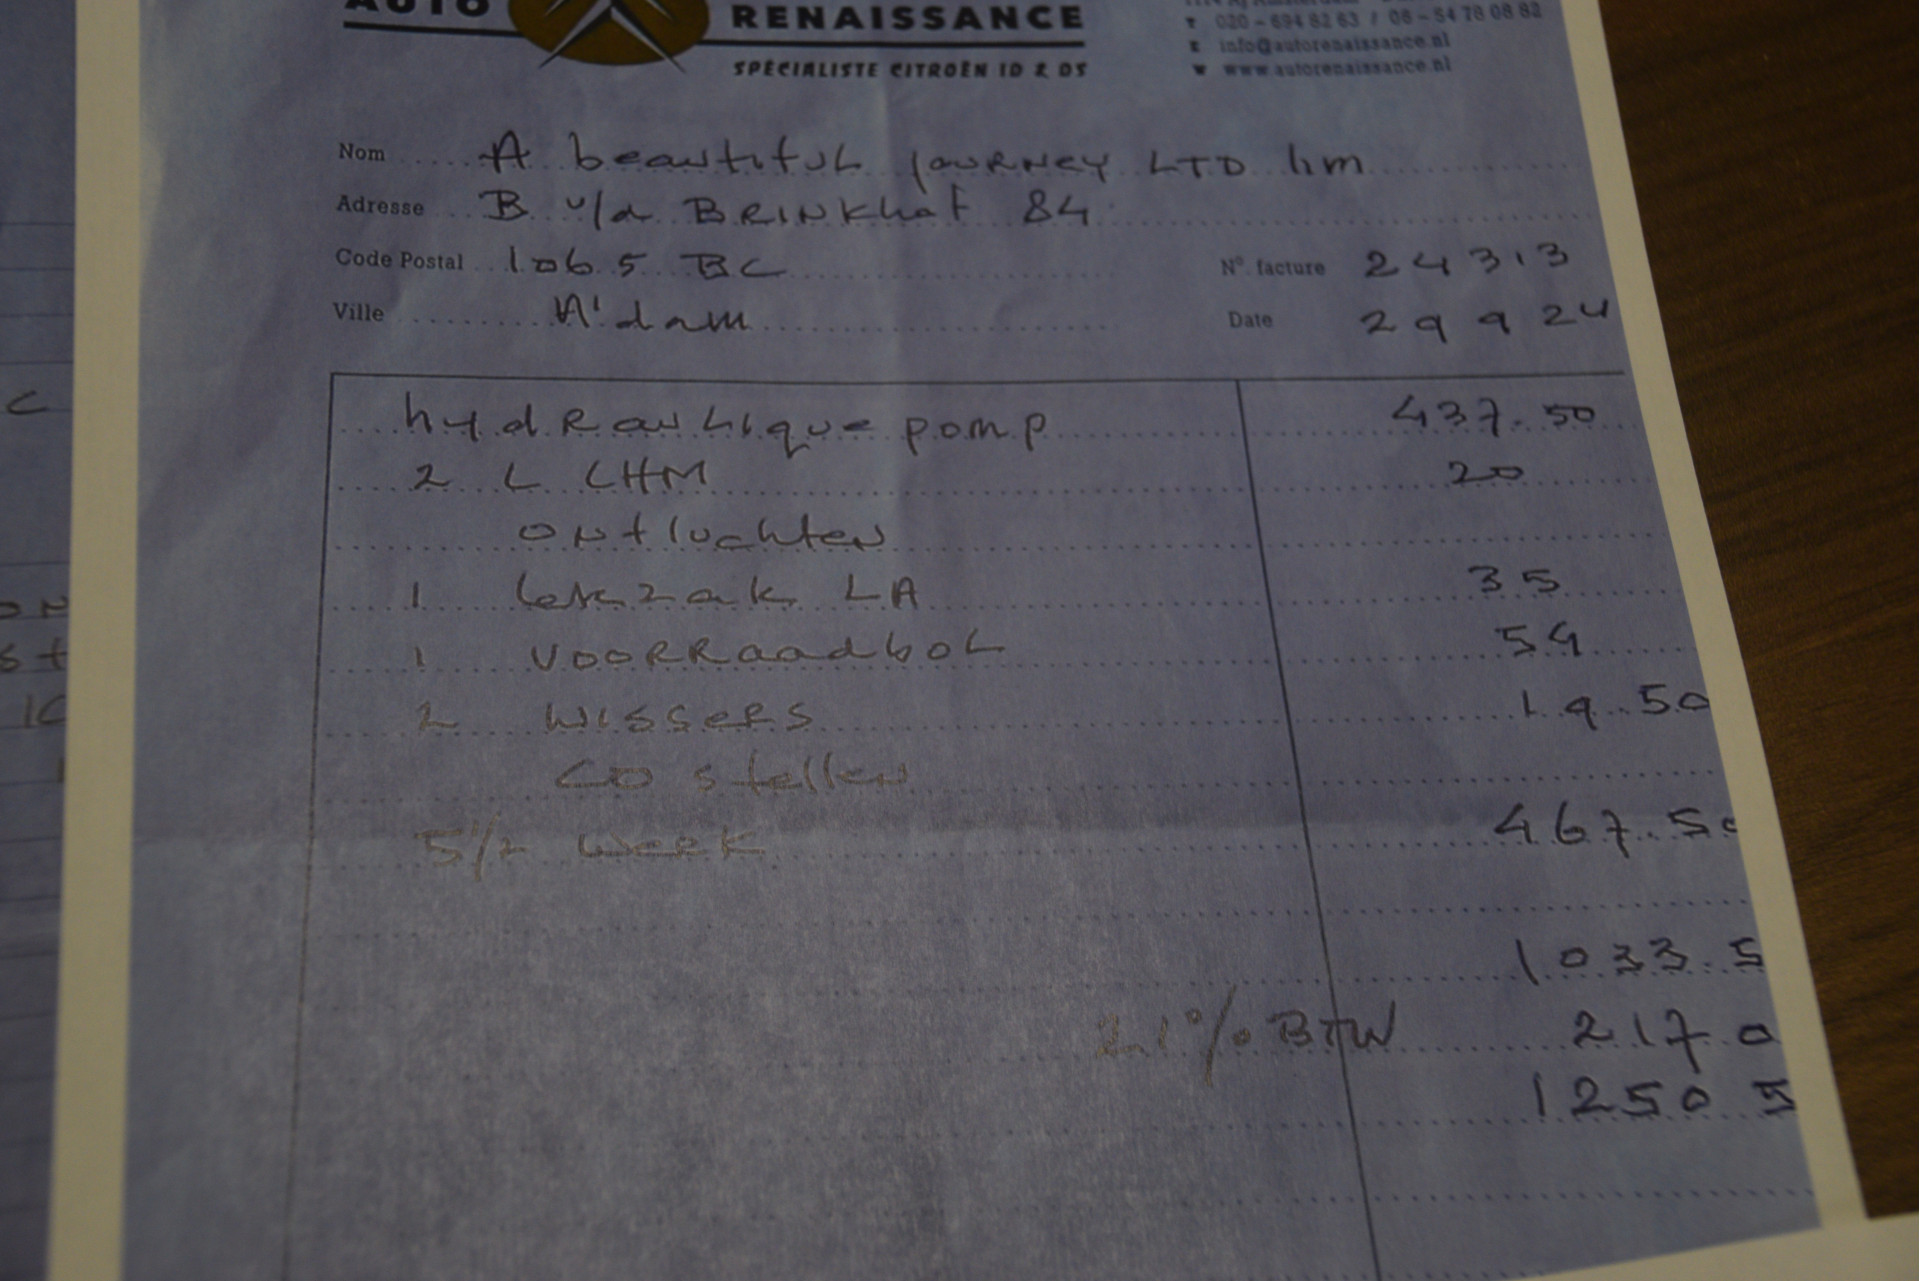 AUTO RENAISSANCE
SPÉCIALISTE CITROËN ID & DS
T 020 - 694 82 63 / 06 - 54 78 08 82
E info@autorenaissance.nl
W www.autorenaissance.nl
Nom A beautifuL journey LTD lim
Adresse B v/d BRINKhof 84
Code Postal 1065 BC
N° facture 24313
Ville A'dam
Date 29 9 24
hydRaulique pomp 437.50
2 L LHM 20
ontluchten
1 lekzak LA 35
1 VOORRaadboL 54
2 wisseRs 19.50
CO stellen
5 1/2 week 467.50
1033.5
21% BTW 217 0
1250 5